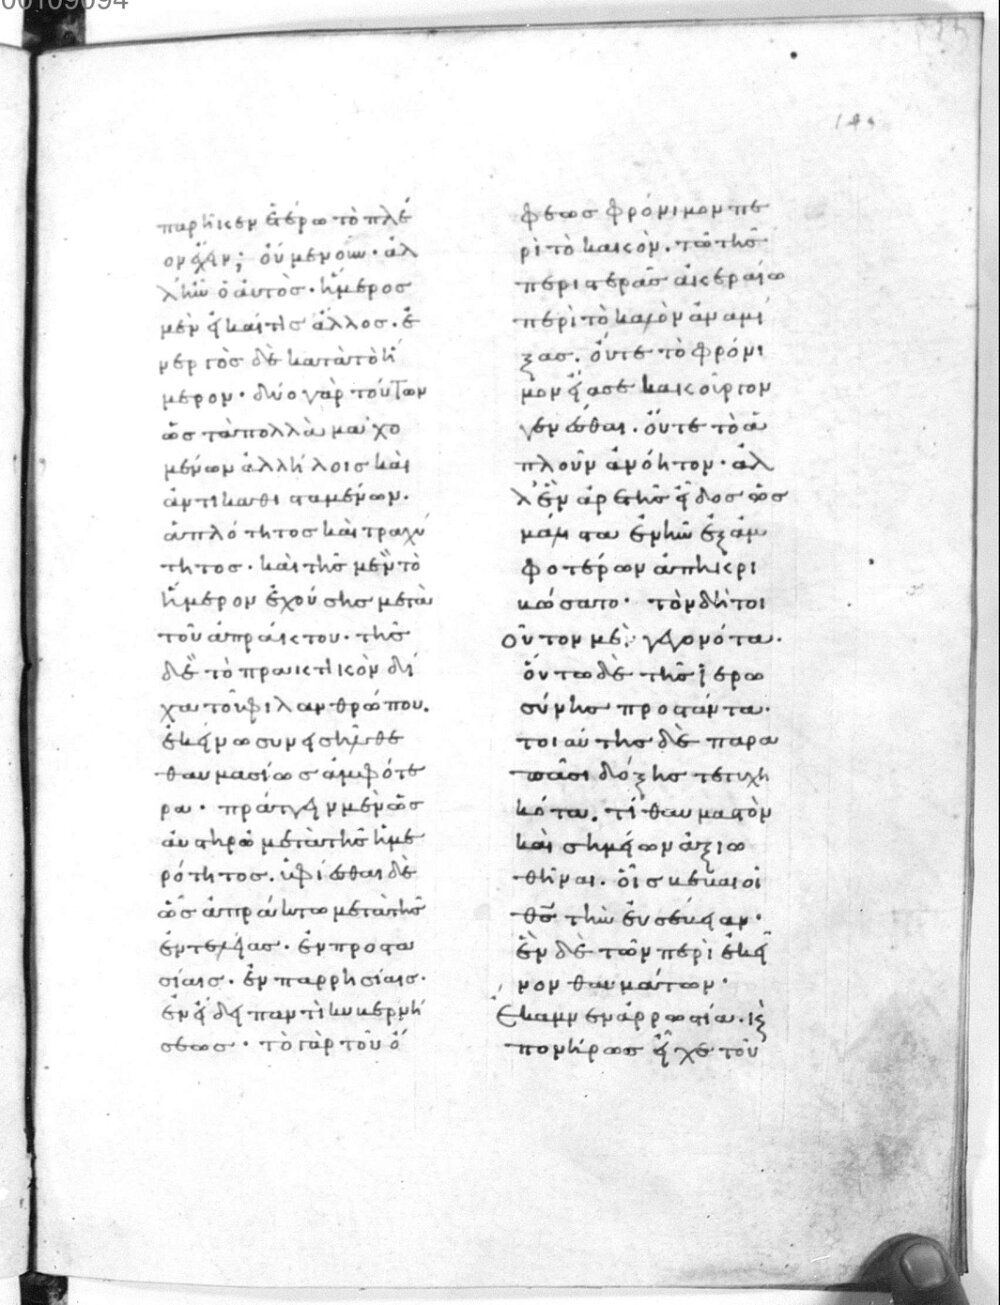 00109094
149
παρῆκεν ἑτέρω τὸ πλέ
ον ἔχειν; οὐμενοῦν· ἀλ
λ' ἦν ὁ αὐτὸς· ἥμερος
μὲν εἰ καί τις ἄλλος· ἐ
νεργὸς δὲ κατὰ τὸ ἥ
μερον· δύο γὰρ τούτων
ὡς τὰ πολλὰ μαχο
μένων ἀλλήλοις καὶ
ἀντικαθισταμένων.
ἁπλότητος καὶ τραχύ
τητος· καὶ τῆς μὲν τὸ
ἥμερον ἐχούσης μετὰ
τοῦ ἀπράκτου· τῆς
δὲ τὸ πρακτικὸν δί
χα τοῦ φιλανθρώπου.
ἐκείνω συνεισῆλθε
θαυμασίως ἀμφότε
ρα· πράττειν μὲν ὡς
αὐστηρῶ μετὰ τῆς ἡμε
ρότητος. ὑφίεσθαι δὲ
ὡς ἀπράκτω μετὰ τῆς
ἐντελείας· ἐν προστα
σίαις· ἐν παρρησίαις·
ἐν εἴδει παντὶ κυβερνή
σεως· τὸ γὰρ τοῦ ὄ
φεως φρόνιμον πε
ρὶ τὸ κακὸν. τῶ τῆς
περιστερᾶς ἀκεραίω
περὶ τὸ καλὸν ἀναμί
ξας. οὔτε τὸ φρόνι
μον εἴασε κακοῦργον
γενέσθαι. οὔτε τὸ ἁ
πλοῦν ἀνόητον· ἀλ
λ' ἓν ἀρετῆς εἶδος ὡς
μάλιστα ἐνῆν ἐξ ἀμ
φοτέρων ἀπηκρι
βώσατο· τὸν δὴ τοι
οῦτον μὲν γεγονότα.
οὕτω δὲ τῆς ἱερω
σύνης προστάντα·
τοιαύτης δὲ παρα
πᾶσι δόξης τετυχη
κότα. τί θαυμαστὸν
καὶ σημείων ἀξιω
θῆναι. οἷς βεβαιοῖ
θς τὴν εὐσέβειαν·
ἓν δὲ τῶν περὶ ἐκεῖ
νον θαυμάτων·
Ἔκαμνεν ἀρρωστία. καὶ
πονήρως εἶχε τοῦ